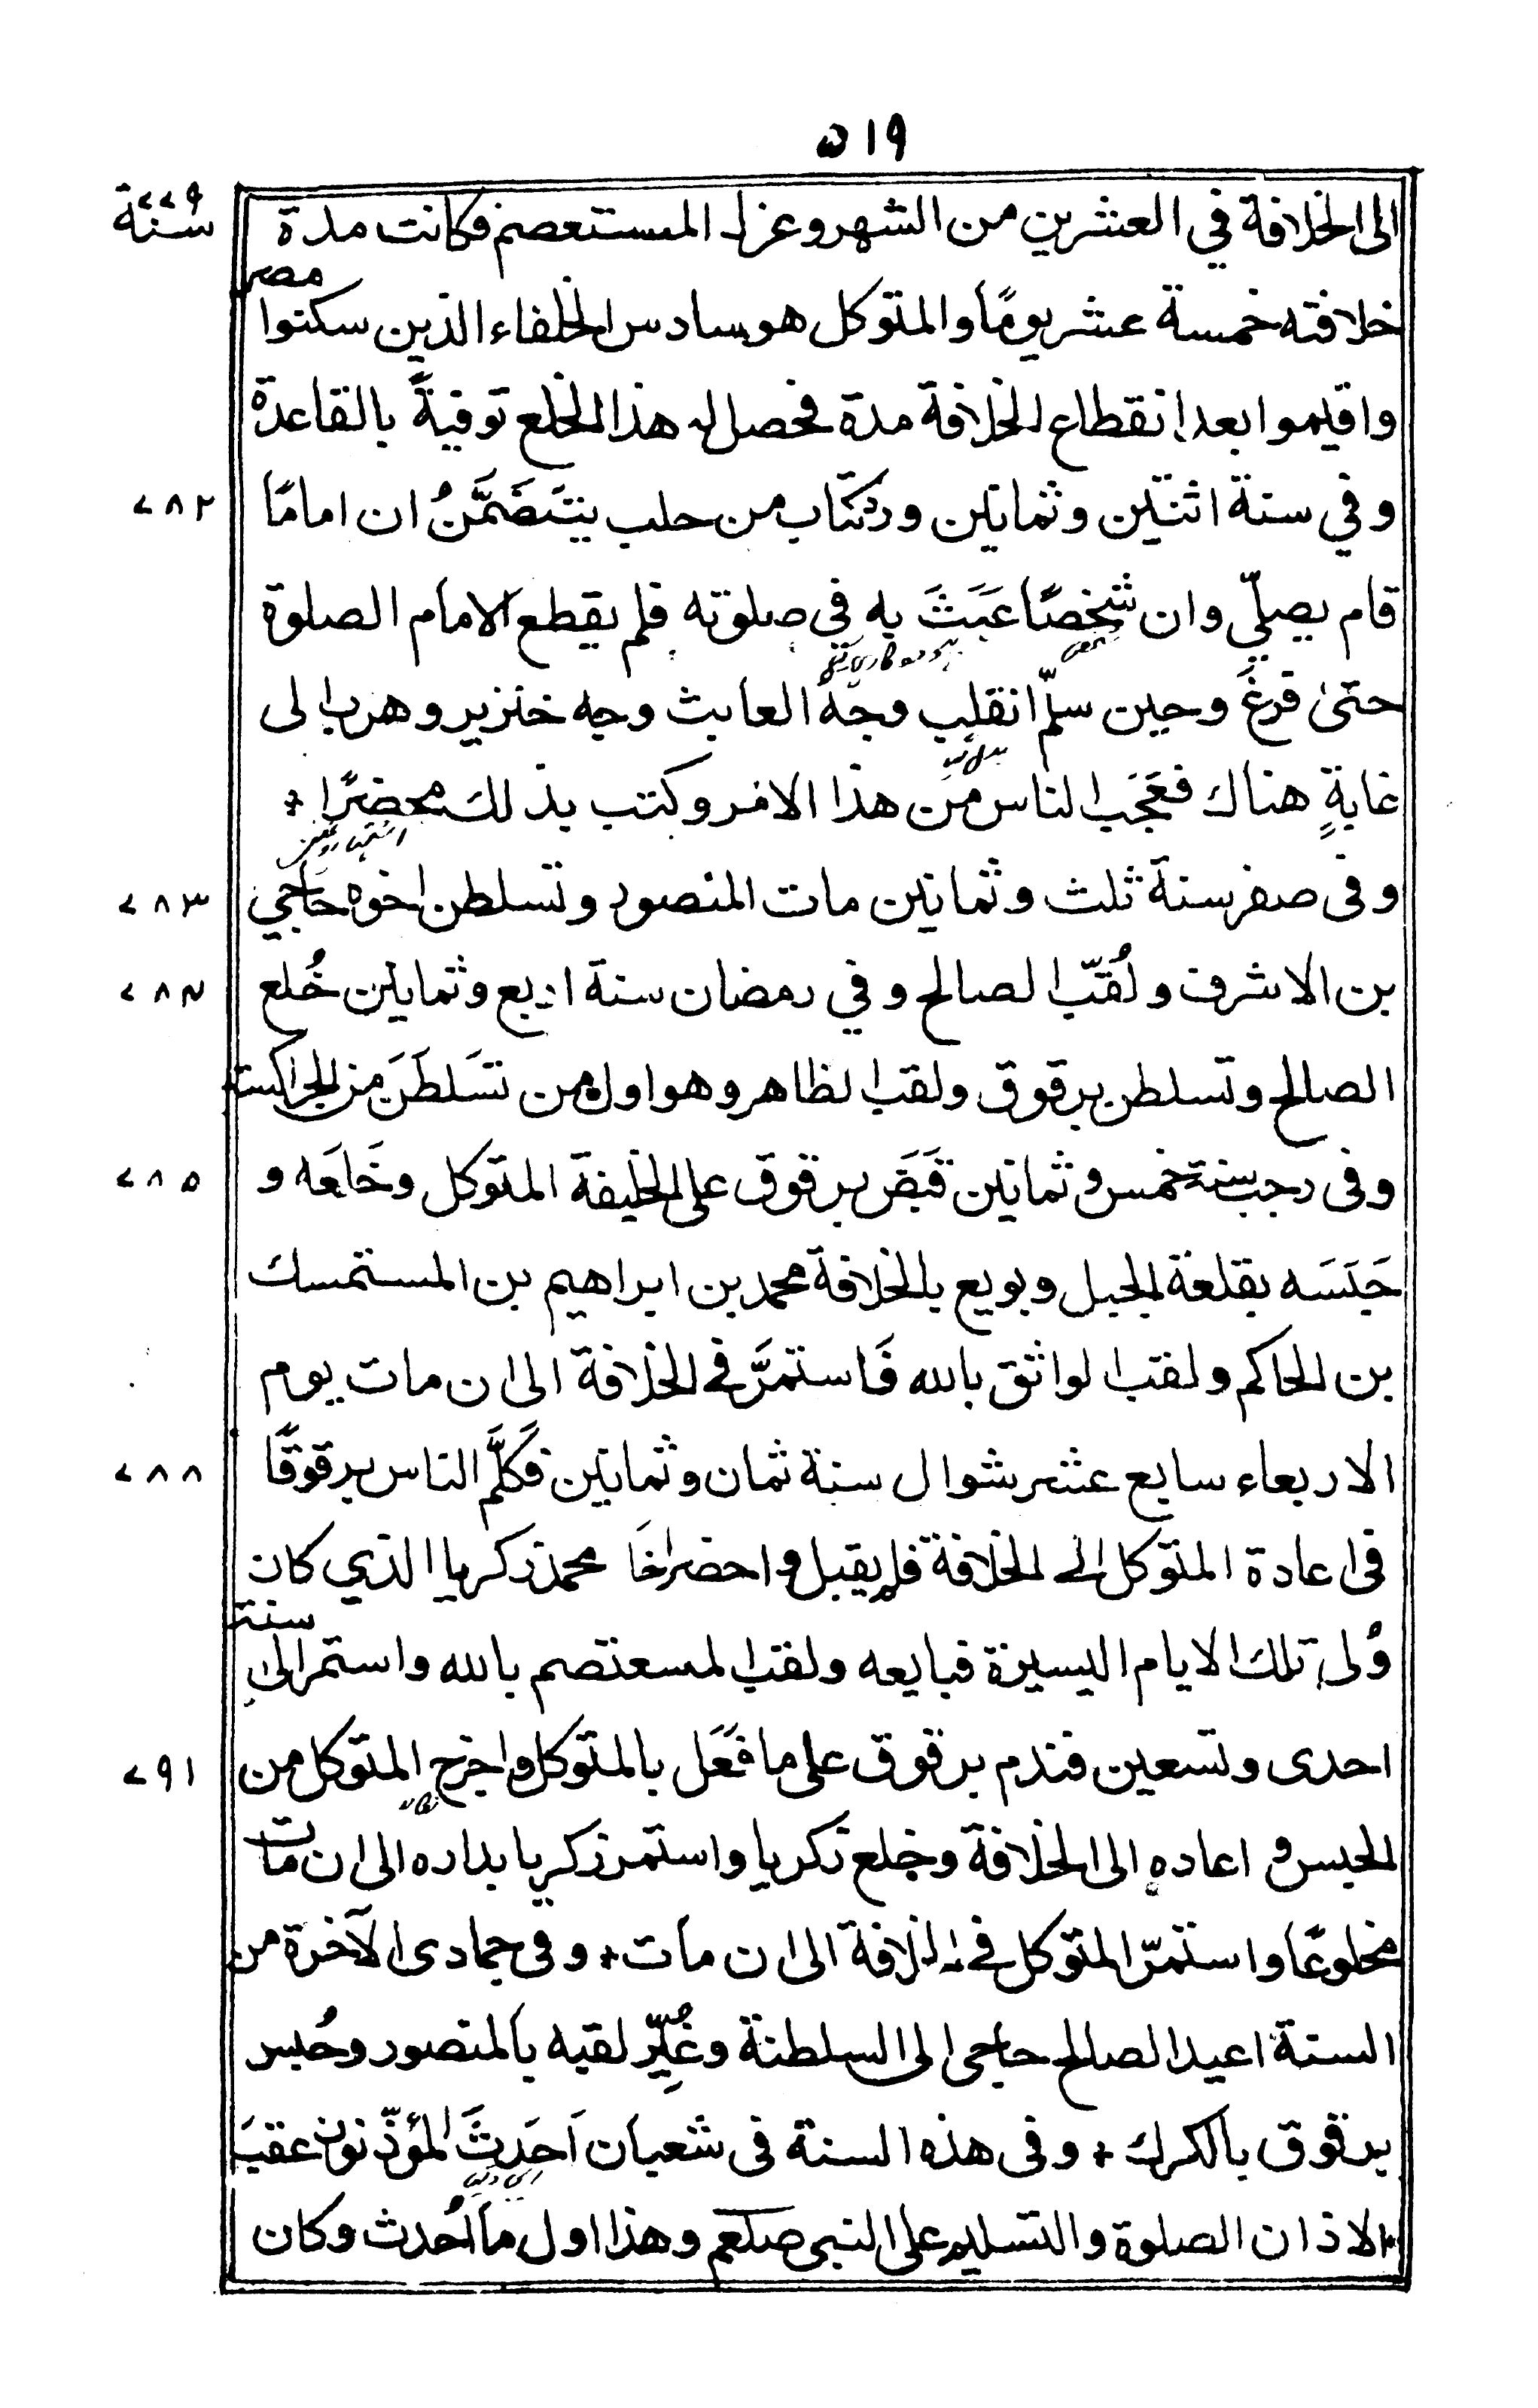 ۵۱۹
سنة ۷۷۹
الى الخلافة في العشرين من الشهر وعزل المستعصم فكانت مدة
خلافته خمسة عشر يومًا والمتوكل هو سادس الخلفاء الذين سكنوا مصر
واقيموا بعد انقطاع الخلافة مدة فحصل له هذا الخلع توفيةً بالقاعدة
وفي سنة اثنتين وثمانين ورد كتاب من حلب يتَضَمَّنُ ان امامًا ۷۸۲
قام يصلّي وان شخصًا عَبَثَ به في صلوته فلم يقطع الامام الصلوة
حتى فرغَ وحين سلّم انقلب وجهُ العابث وجه خنزير وهرب الى
غابةٍ هناك فعَجَب الناس من هذا الامر وكتب بذلك محضرًا +
وفى صفر سنة ثلث وثمانين مات المنصور وتسلطن اخوه حاجي ۷۸۳
بن الاشرف ولُقّب الصالح وفي رمضان سنة اربع وثمانين خُلع ۷۸۴
الصالح وتسلطن برقوق ولقب الظاهر وهو اول من تسَلطَنَ من الجراكسة
وفى رجب سنة خمس وثمانين قَبَضَ برقوق على الخليفة المتوكل وخَلعَه و ۷۸۵
حَبَسَه بقلعة الجبل وبويع بالخلافة محمد بن ابراهيم بن المستمسك
بن الحاكم ولقب الواثق بالله فَاستمرَّ في الخلافة الى ان مات يوم
الاربعاء سابع عشر شوال سنة ثمان وثمانين فكلَّم الناس برقوقًا ۷۸۸
فى اعادة المتوكل الى الخلافة فلم يقبل واحضر اخَا محمد زكريا الذي كان
وُلى تلك الايام اليسيرة فبايعه ولقب المسعتصم بالله واستمر الى سنة
احدى وتسعين فندم برقوق على ما فَعَل بالمتوكل واخرج المتوكل من ۷۹۱
الحبس و اعاده الى الخلافة وخلع زكريا واستمر زكريا بداره الى ان مات
مخلوعًا واستمرّ المتوكل في الخلافة الى ان مات + وفى جمادى الآخرة من
السنة اعيد الصالح حاجى الى السلطنة وغُيِّر لقبه بالمنصور وحُبس
برقوق بالكرك + وفى هذه السنة فى شعبان اَحدَثَ المؤذّنون عقيبَ
الاذان الصلوة والتسليم على النبى صلعم وهذا اول ما اُحدث وكان